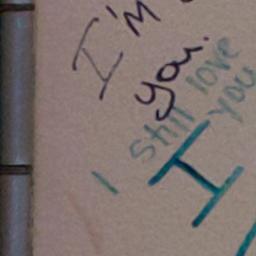 I'm
you.
I still love
you
I